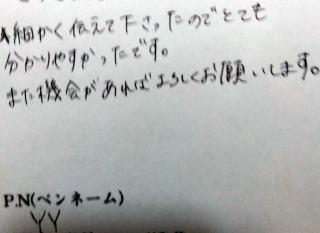 細かく伝えて下さったのでとても
分かりやすかったです。
また機会があればよろしくお願いします。
P.N(ペンネーム)
YY